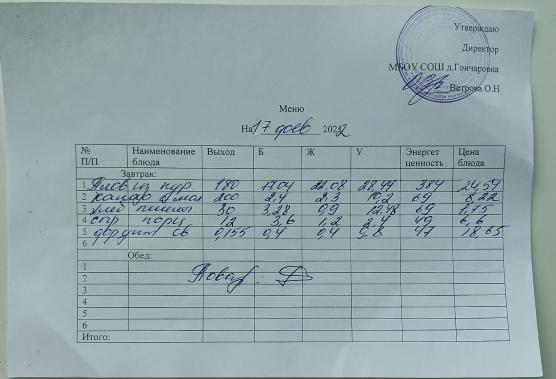 Утверждаю
Директор
МБОУ СОШ д.Гончаровка
Ветрова О.Н
Меню
На 17 фев 2022
№ П/П Наименование блюда Выход Б Ж У Энергет ценность Цена блюда
Завтрак:
1 Плов из кур. 180 17,04 22,08 28,44 384 24,54
2 Какао с мол 200 2,4 2,3 10,2 69 8,22
3 хлеб пшенич 30 3,28 0,9 12,48 69 1,75
4 сыр порц 12 3,6 1,2 2,4 49 6,6
5 фрукт св 0,155 0,4 0,4 9,8 47 18,65
6
Обед:
1 Повар:
2
3
4
5
6
Итого: